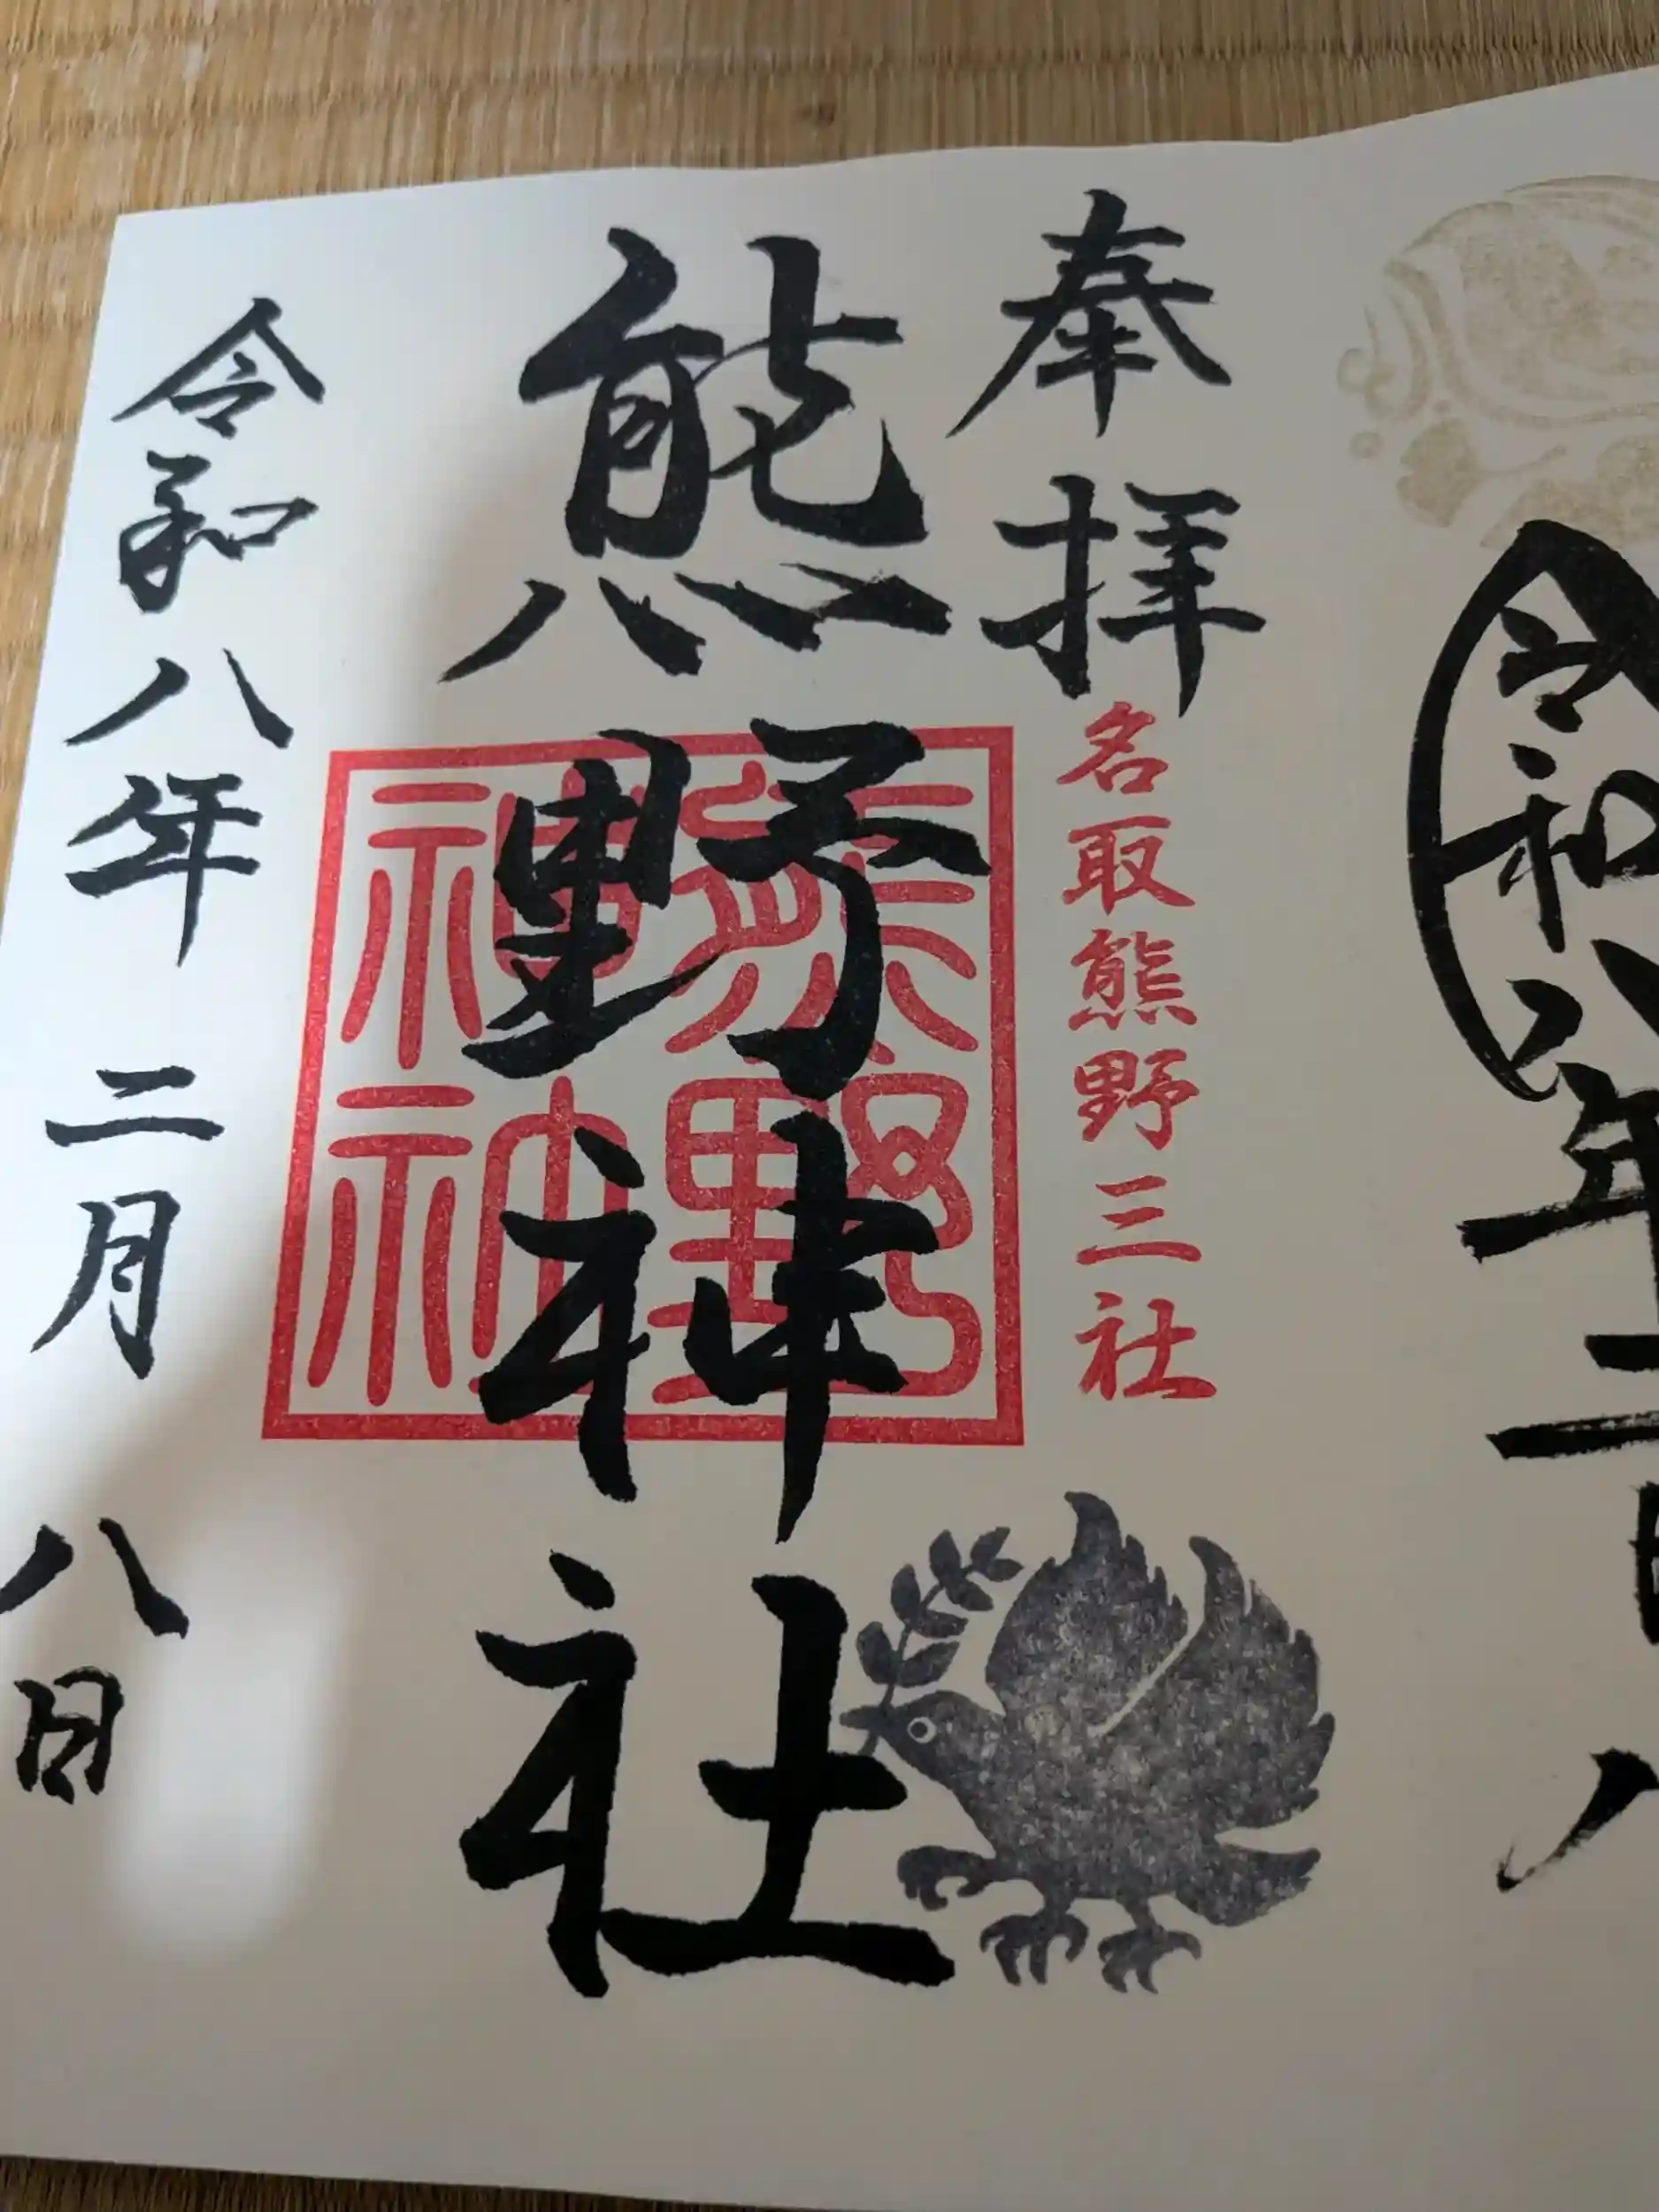 令和八年二月八
奉拝
名取熊野三社
熊野神社
熊野神社
令和八年二月八日